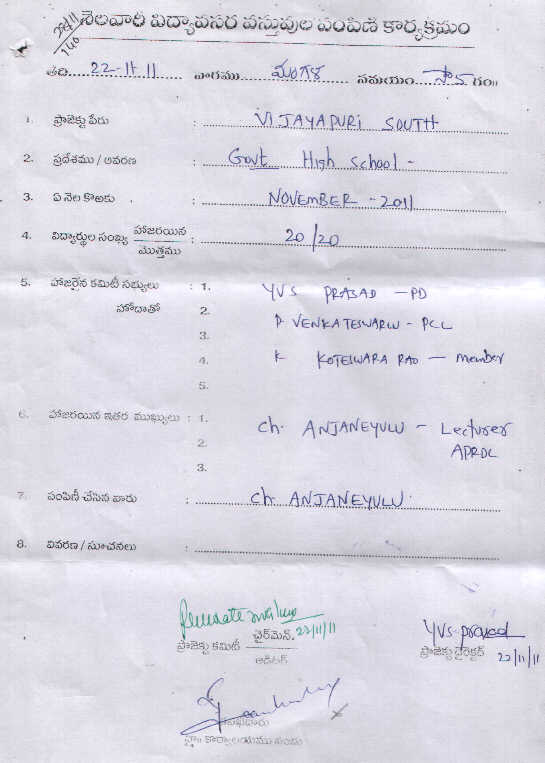 నెలవారీ విద్యావసర వస్తువుల పంపిణీ కార్యక్రమం
తేది 22-11-11 వారము మంగళ సమయం సా 5 గం॥
1. ప్రాజెక్టు పేరు : VIJAYAPURI SOUTH
2. ప్రదేశము / ఆవరణ : Govt High School -
3. ఏ నెల కొఱకు : NOVEMBER - 2011
4. విద్యార్థుల సంఖ్య హాజరయిన / మొత్తము : 20/20
5. హాజరైన కమిటీ సభ్యులు : 1. YVS PRASAD - PD
హోదాతో 2. P VENKATESWARLU - PCC
3.
4. K KOTESWARA RAO - member
5.
6. హాజరయిన ఇతర ముఖ్యులు : 1. Ch. ANJANEYULU - Lecturer
2. APRDC
3.
7. పంపిణీ చేసిన వారు : Ch. ANJANEYULU
8. వివరణ / సూచనలు :
ప్రాజెక్టు కమిటీ ఛైర్మెన్ / ఆడిటర్ 22/11/11
YVS prasad
ప్రాజెక్టు డైరెక్టర్ 22/11/11